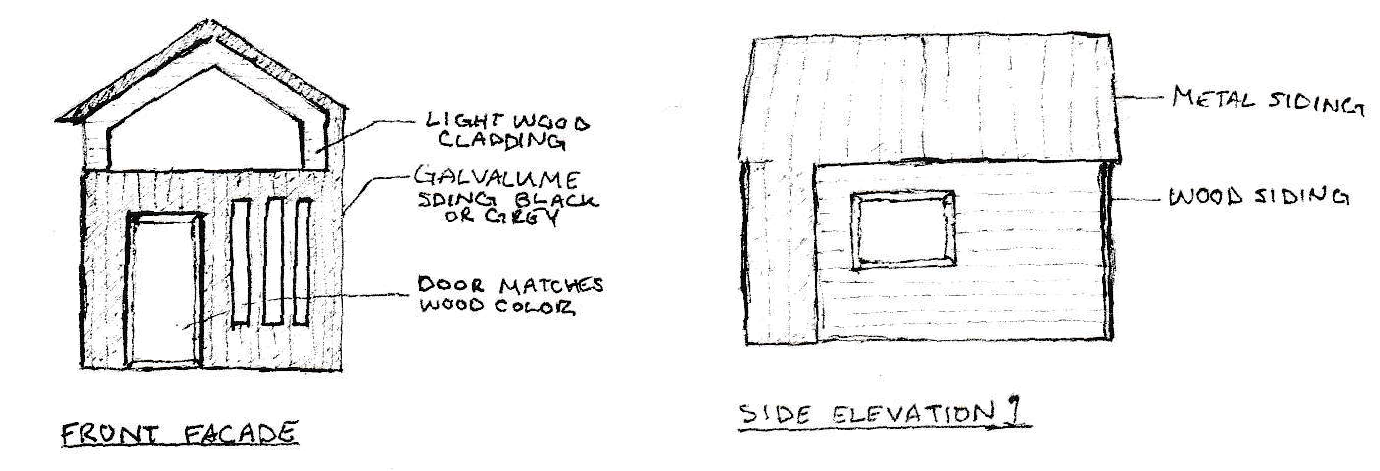 LIGHT WOOD
CLADDING
GALVALUME
SDING BLACK
OR GREY
DOOR MATCHES
WOOD COLOR
FRONT FACADE
METAL SIDING
WOOD SIDING
SIDE ELEVATION 1